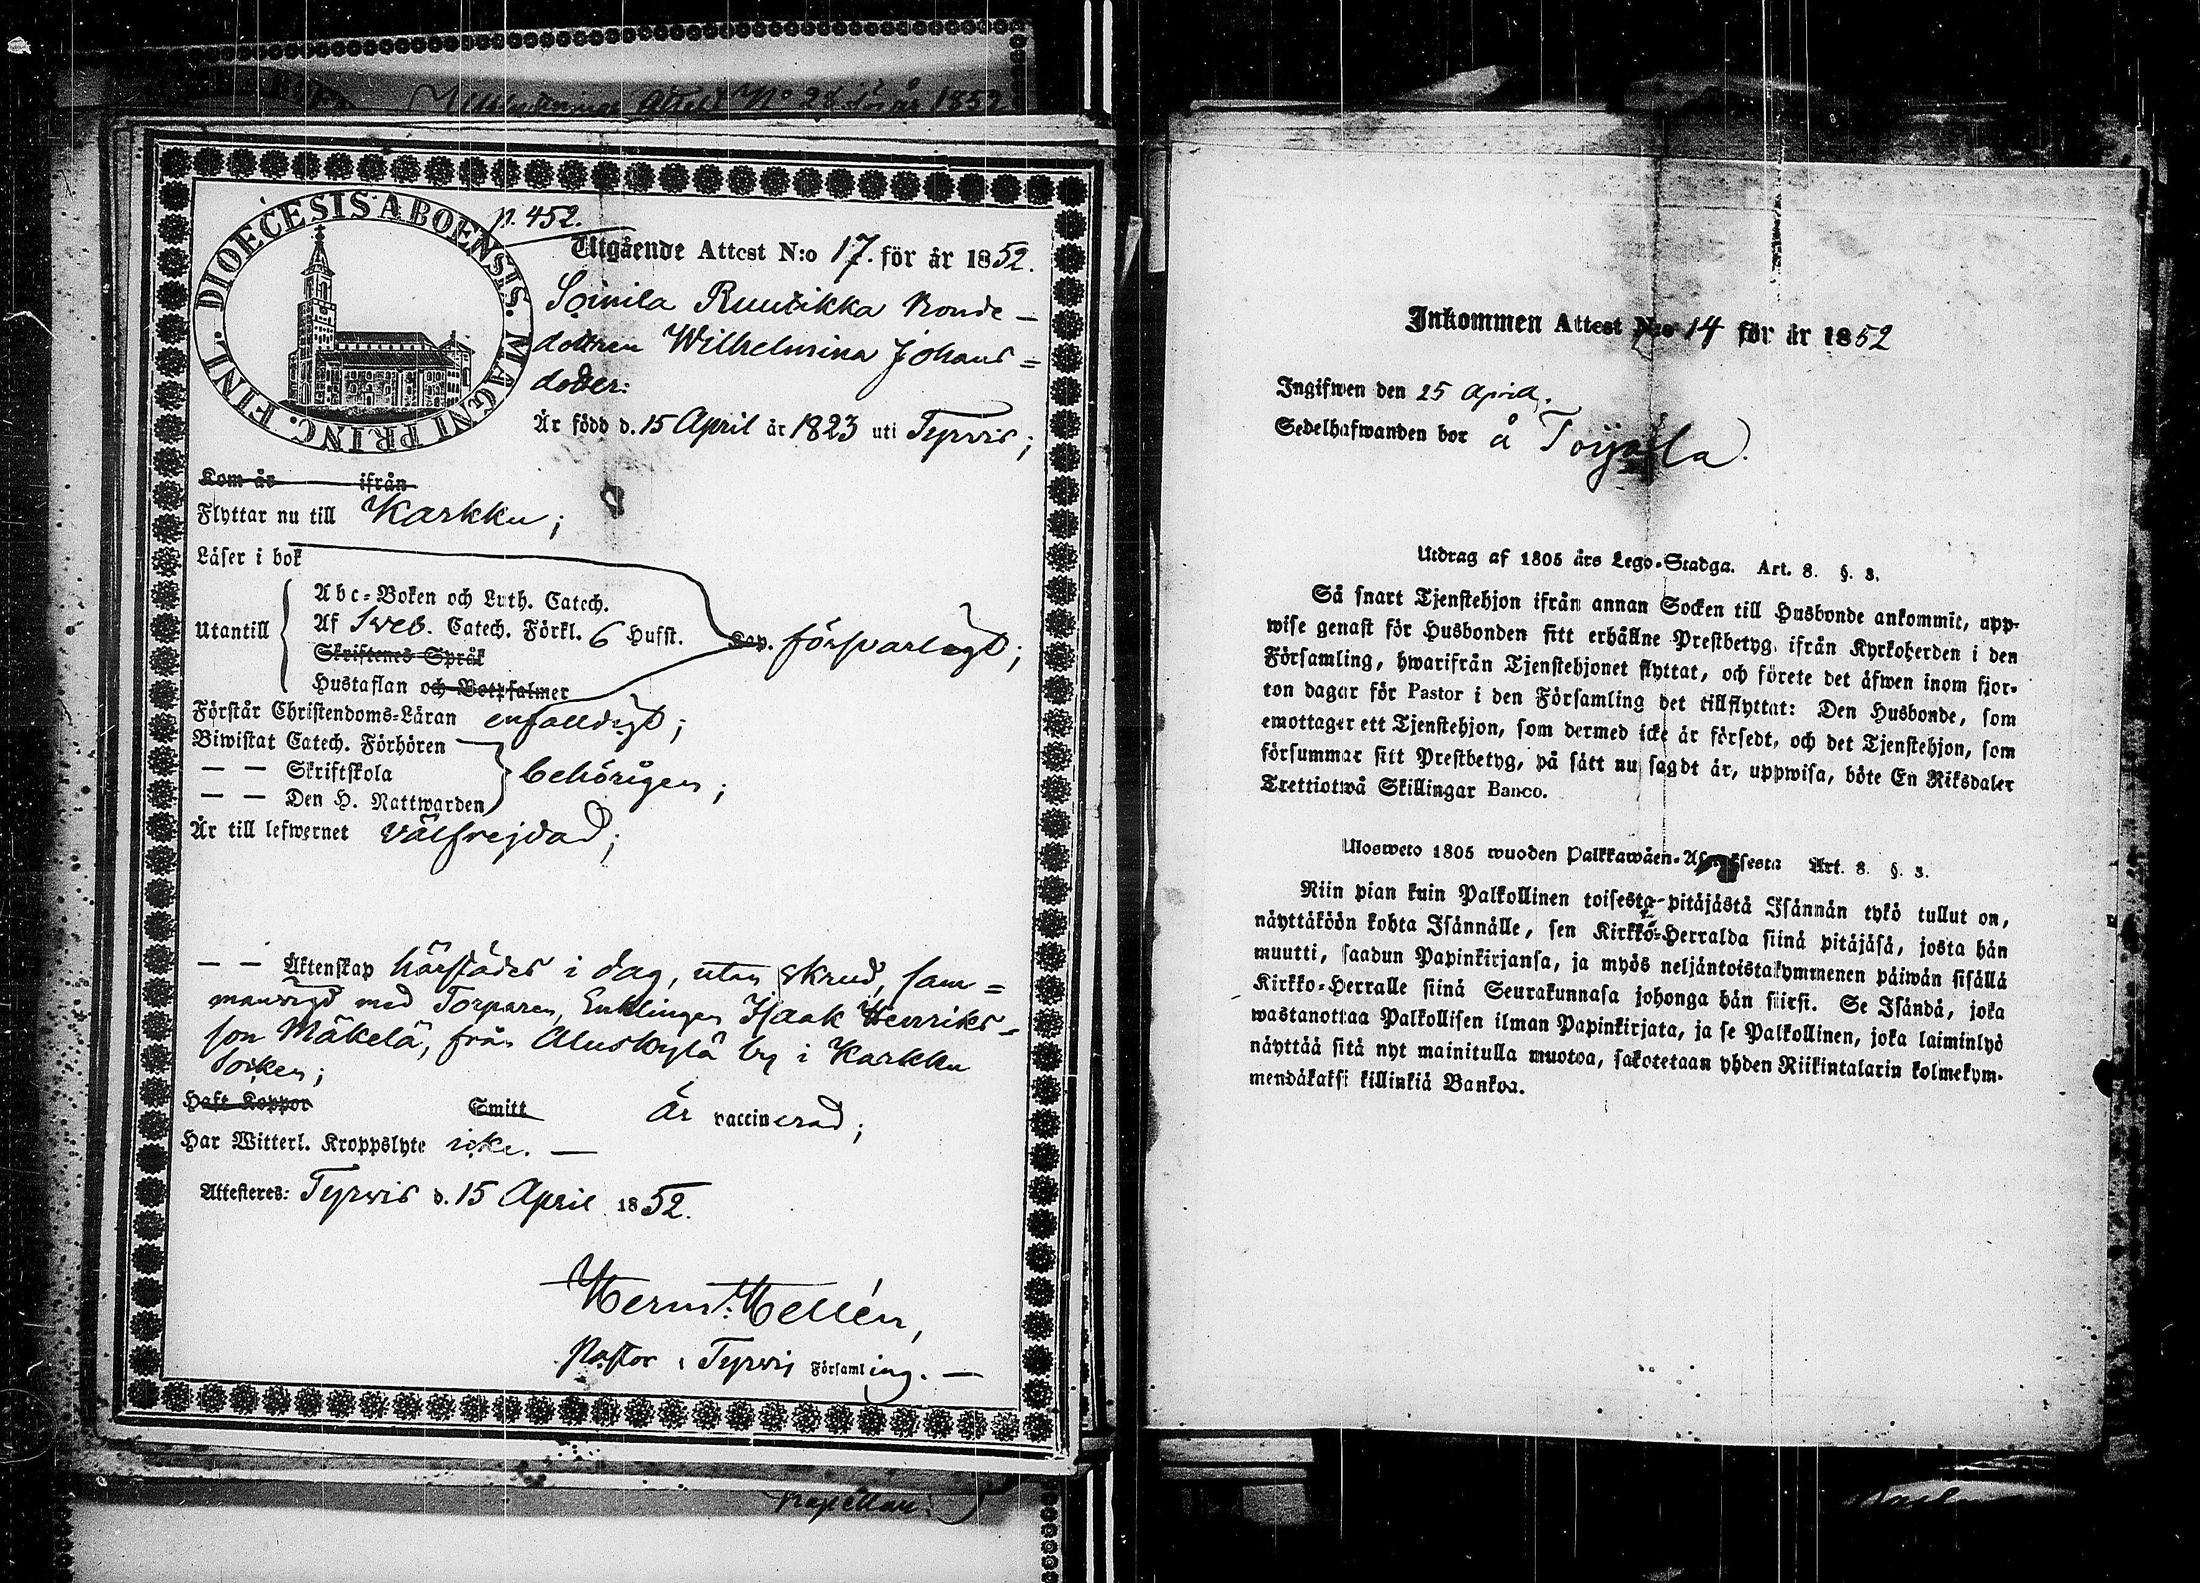 Attest No för år 1852
DIOECESIS ABOENSIS. MAGNI PRINC. FINL.
p. 452.
Utgående Attest N:o 17. för år 1852.
Soinila Ruutikka Bonde-
dottren Wilhelmina Johans=
dotter:
Är född d. 15 April år 1823 uti Tyrvis;
Kom år ifrån
Flyttar nu till Karkku;
Läser i bok
Utantill
Abc-Boken och Luth. Catech.
Af Sveb. Catech. Förkl. 6 Hufst. Cap. försvarligt;
Skriftenes Språk
Hustaflan och Botpsalmer
Förstår Christendoms-Läran enfalldigt;
Biwistat Catech. Förhören
— — Skriftskola behörigen;
— — Den H. Nattwarden
Är till lefwernet välfrejdad;
— — Äktenskap härstädes i dag, utan skrud, sam=
manvigd med Torparen, Enklingen Isaak Henriks=
son Mäkelä, från Aluskylä by i Karkku
Socken;
Haft Koppor Smitt Är vaccinerad;
Har Witterl. Kroppslyte icke. —
Attesteres: Tyrvis d. 15 April 1852.
Herm. Hellén,
Pastor i Tyrvis Församling. —
Kapellan.
Inkommen Attest N:o 14 för år 1852
Ingifwen den 25 April.
Sedelhafwanden bor å
Utdrag af 1805 års Lego-Stadga. Art. 8. §. 3.
Så snart Tjenstehjon ifrån annan Socken till Husbonde ankommit, upp-
wise genast för Husbonden sitt erhållne Prestbetyg, ifrån Kyrkoherden i den
Församling, hwarifrån Tjenstehjonet flyttat, och förete det äfwen inom fjor-
ton dagar för Pastor i den Församling det tillflyttat: Den Husbonde, som
emottager ett Tjenstehjon, som dermed icke är försedt, och det Tjenstehjon, som
försummar sitt Prestbetyg, på sätt nu sagdt är, uppwisa, böte En Riksdaler
Trettiotwå Skillingar Banco.
Ulosweto 1805 wuoden Palkkawäen-Asetuksesta Art. 8. §. 3.
Niin pian kuin Palkollinen toisesta pitäjästä Isännän tykö tullut on,
näyttäköön kohta Isännälle, sen Kirkko-Herralda siinä pitäjäsä, josta hän
muutti, saadun Papinkirjansa, ja myös neljäntoistakymmenen päiwän sisällä
Kirkko-Herralle siinä Seurakunnasa johonga hän siirsi. Se Isändä, joka
wastanottaa Palkollisen ilman Papinkirjata, ja se Palkollinen, joka laiminlyö
näyttää sitä nyt mainitulla muotoa, sakotetaan yhden Riikintalarin kolmekym-
mendäkaksi killinkiä Bankoa.